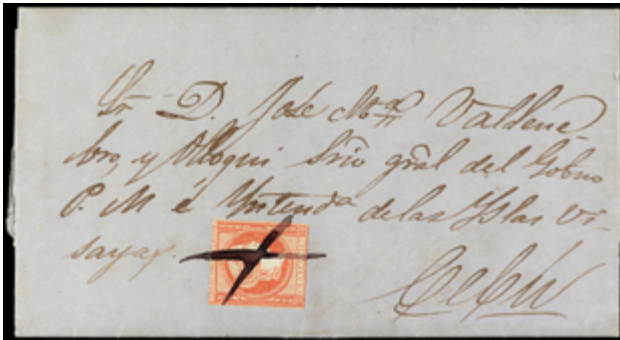 Sr. D. José Ma Valdene-
bro, y Olloqui Srio gral del Gobno
P. M é Intenda de las Yslas Vi-
sayas.
Cebú